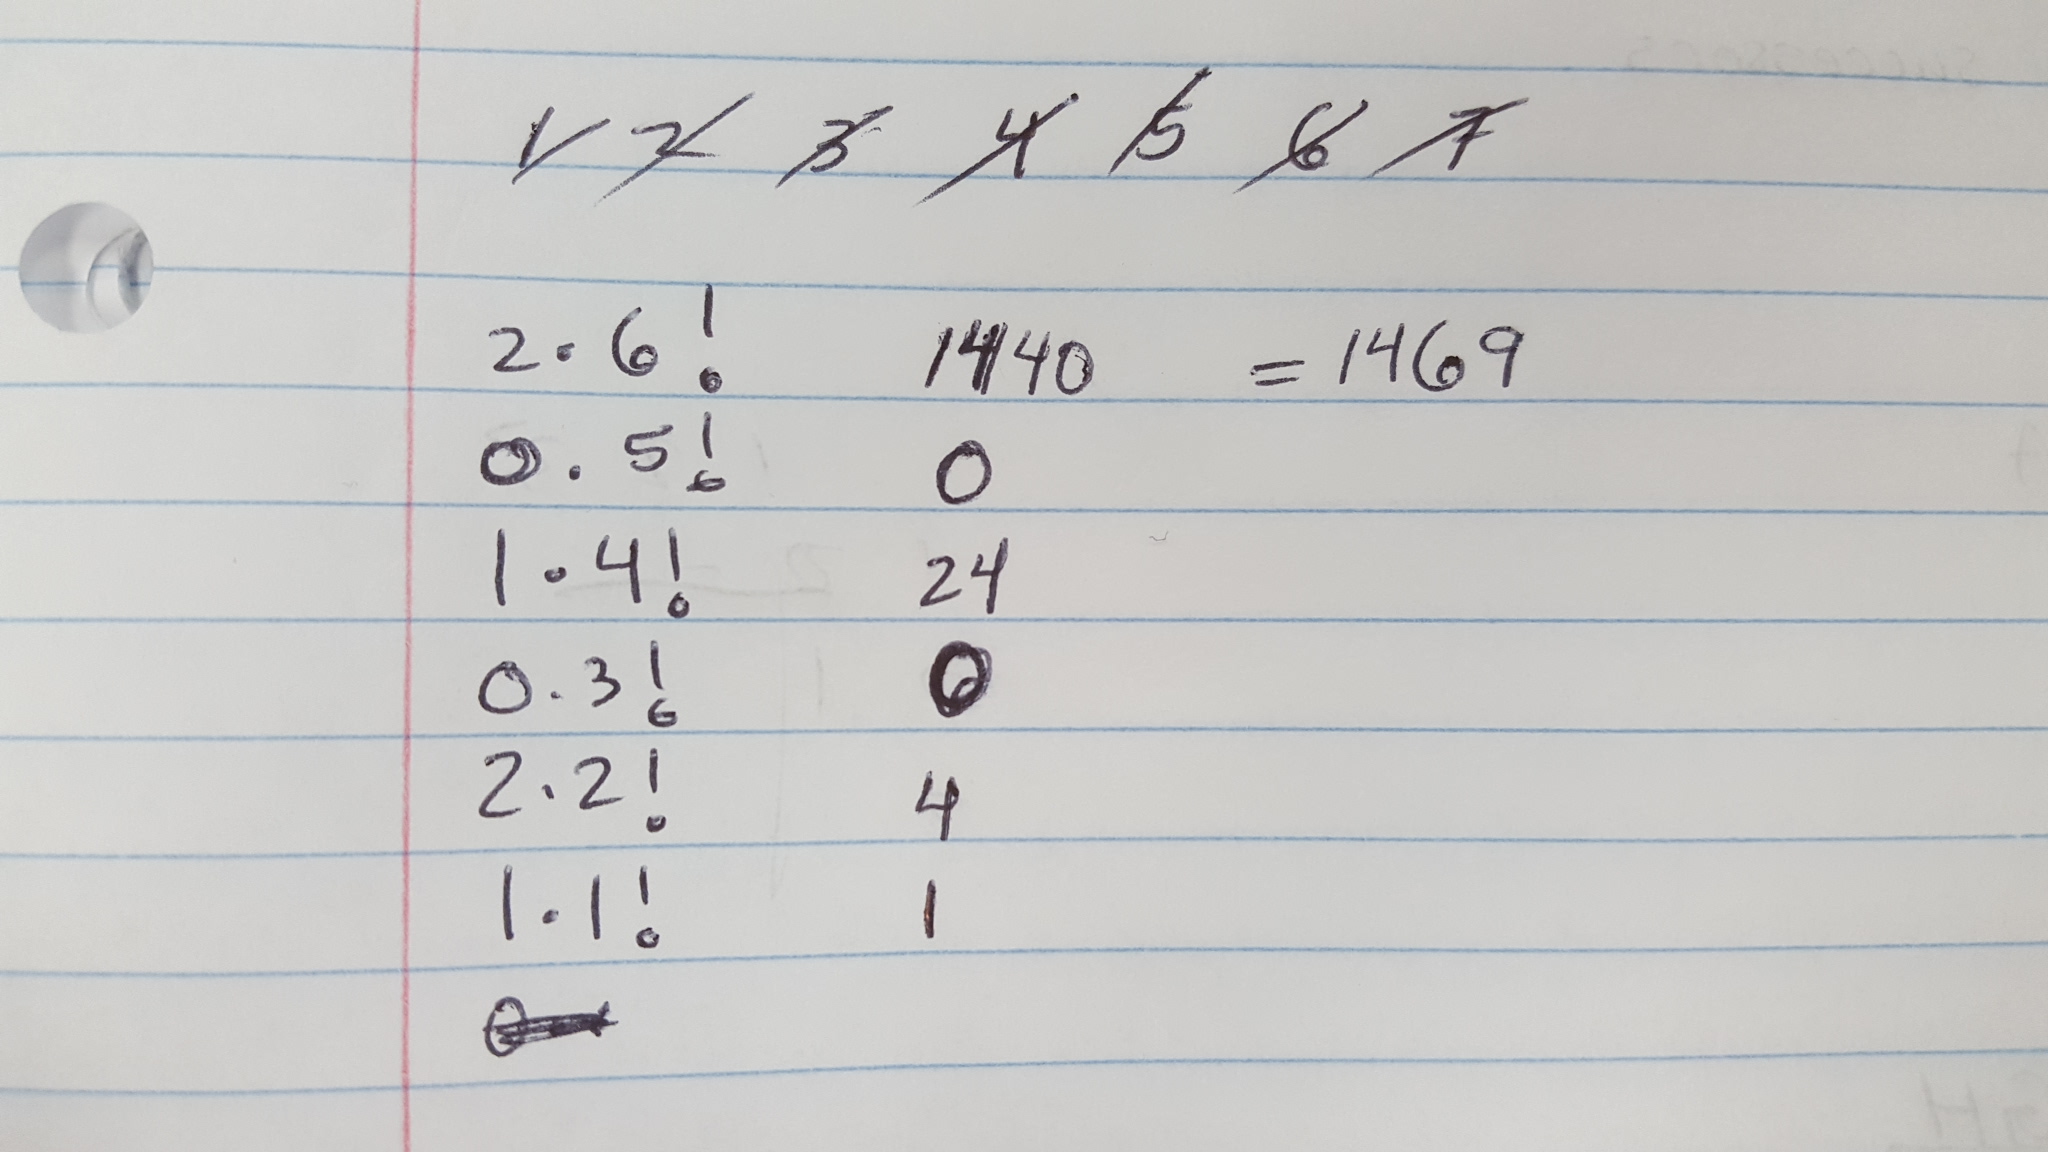 1 2 3 4 5 6 7
2·6! 1440 = 1469
0·5! 0
1·4! 24
0·3! 0
2·2! 4
1·1! 1